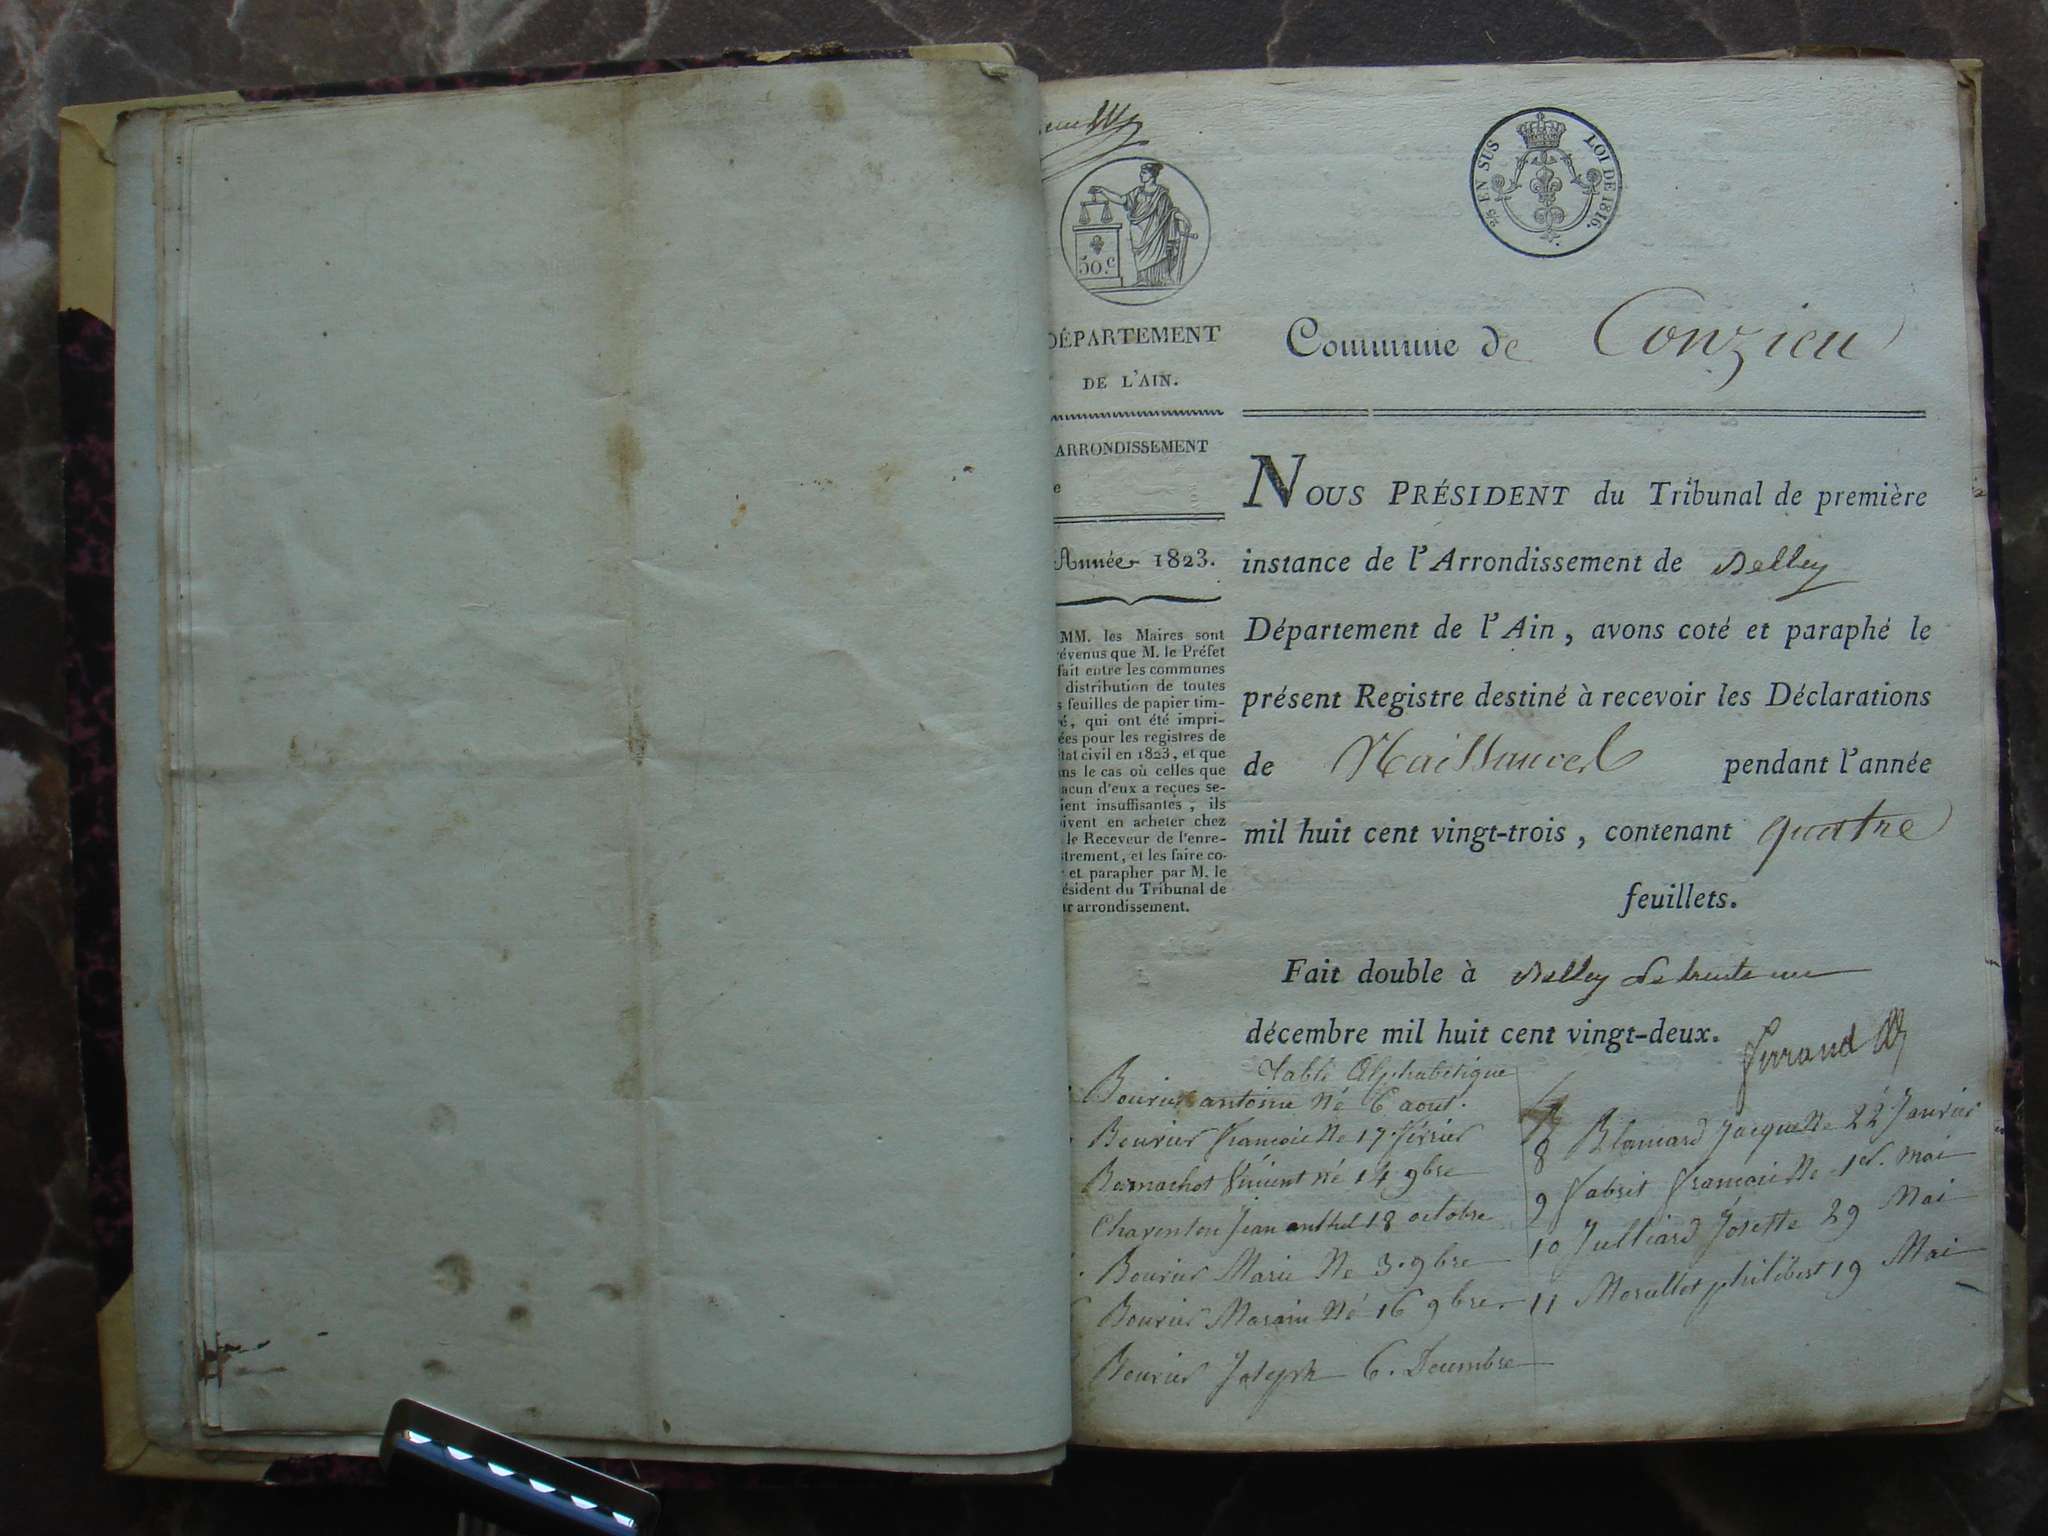 50.c
25 EN SUS LOI DE 1816.
DÉPARTEMENT
DE L'AIN.
ARRONDISSEMENT
e
Année 1823.
MM. les Maires sont
révenus que M. le Préfet
fait entre les communes
distribution de toutes
s feuilles de papier tim-
é, qui ont été impri-
ées pour les registres de
état civil en 1823, et que
ns le cas où celles que
acun d'eux a reçues se-
ient insuffisantes, ils
oivent en acheter chez
le Receveur de l'enre-
strement, et les faire co-
r et parapher par M. le
ésident du Tribunal de
ur arrondissement.
Commune de Conzieu
NOUS PRÉSIDENT du Tribunal de première
instance de l'Arrondissement de Belley
Département de l'Ain, avons coté et paraphé le
présent Registre destiné à recevoir les Déclarations
de Naissances pendant l'année
mil huit cent vingt-trois, contenant quatre
feuillets.
Fait double à Belley le trente un
décembre mil huit cent vingt-deux.
Ferrand
Table Alphabetique
Bourier antoine Né 6 aout.
Bourier francoise Née 17 février
Bernachot Vincent né 14 9bre
Charenton Jean anthel 18 octobre
Bourier Marie Née 3 9bre
Bourier Né 16 9bre.
Bourier Joseph 6. Decembre
8 Blancard Jacquette 22 Janvier
9 francoise Née 1er. mai
10 Julliard Josette 29 Mai
11 philibert 19 Mai